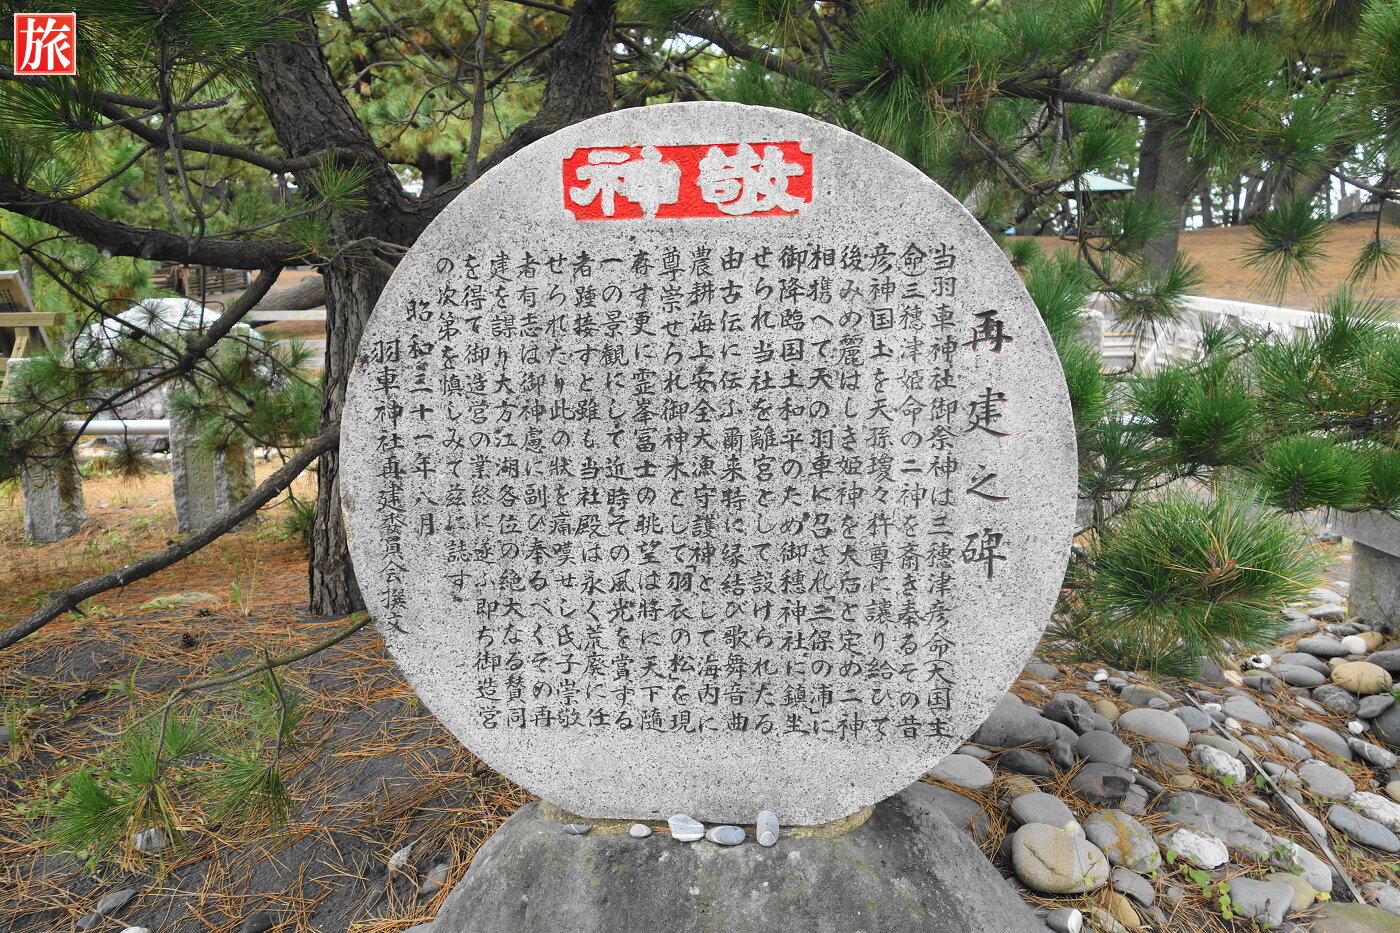 旅
敬神
再建之碑
当羽車神社御祭神は三穂津彦命(大国主
命)三穂津姫命の二神を斎き奉るその昔
彦神国土を天孫瓊々杵尊に譲り給ひて
後みめ麗はしき姫神を大后と定め二神
相携へて天の羽車に召され「三保の浦」に
御降臨国土和平のため御穂神社に鎮坐
せられ当社を離宮として設けられたる
由古伝に伝ふ爾来特に縁結び歌舞音曲
農耕海上安全大漁守護神として海内に
尊崇せられ御神木として「羽衣の松」を現
存す更に霊峯富士の眺望は將に天下随
一の景観にして近時その風光を賞する
者踵接すと雖も当社殿は永く荒廃に任
せられたり此の状を痛嘆せし氏子崇敬
者有志は御神慮に副ひ奉るべくその再
建を謀り大方江湖各位の絶大なる賛同
を得て御造営の業終に遂ふ即ち御造営
の次第を慎しみて茲に誌す
昭和三十一年八月
羽車神社再建委員会撰文